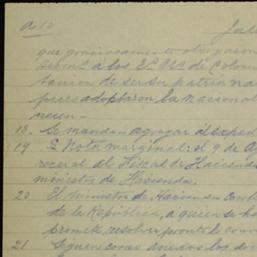 a 10 Jul
que graciosamente otorgaron
a los EE. UU. de Colom
tacion de ser su patria na
pues adoptaron la nacional
necen -
18. Se mandan agregar al exped
19 2 Nota marginal: el 9 de Ag
al Fiscal de Hacienda
ministro de Hacienda.
20 El ministro de Hacienda con
de la República, a quien se ha
promete resolver pronto
21 Siguen como anexos los do